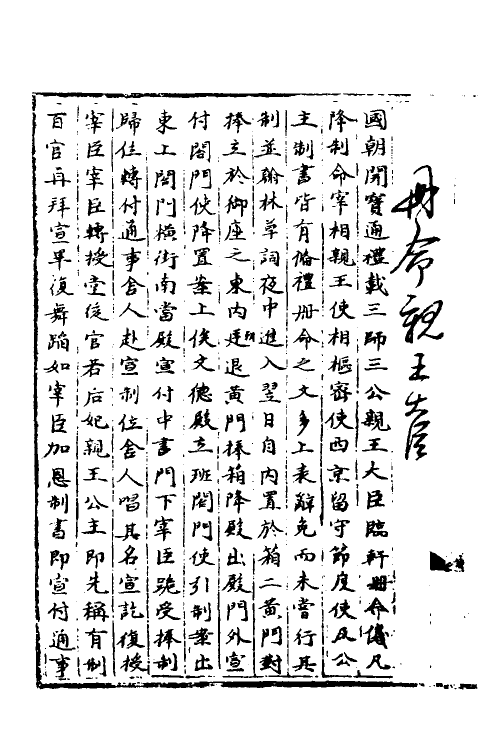 冊命親王大臣
國朝開寶通禮載三師三公親王大臣臨軒冊命儀凡
降制命宰相親王使相樞密使西京留守節度使及公
主制書皆有備禮冊命之文多上表辭免而未嘗行其
制並翰林草詞夜中進入翌日自內置於箱二黃門對
捧立於御座之東內廷退黃門捧箱降殿出殿門外宣
付閤門使降置案上俟文德殿立班閤門使引制案出
東上閤門橫街南當殿宣付中書門下宰臣跪受捧制
歸位轉付通事舍人赴宣制位舍人唱其名宣訖復授
宰臣宰臣轉授堂後官若后妃親王公主即先稱有制
百官再拜宣畢復舞蹈如宰臣加恩制書即宣付通事